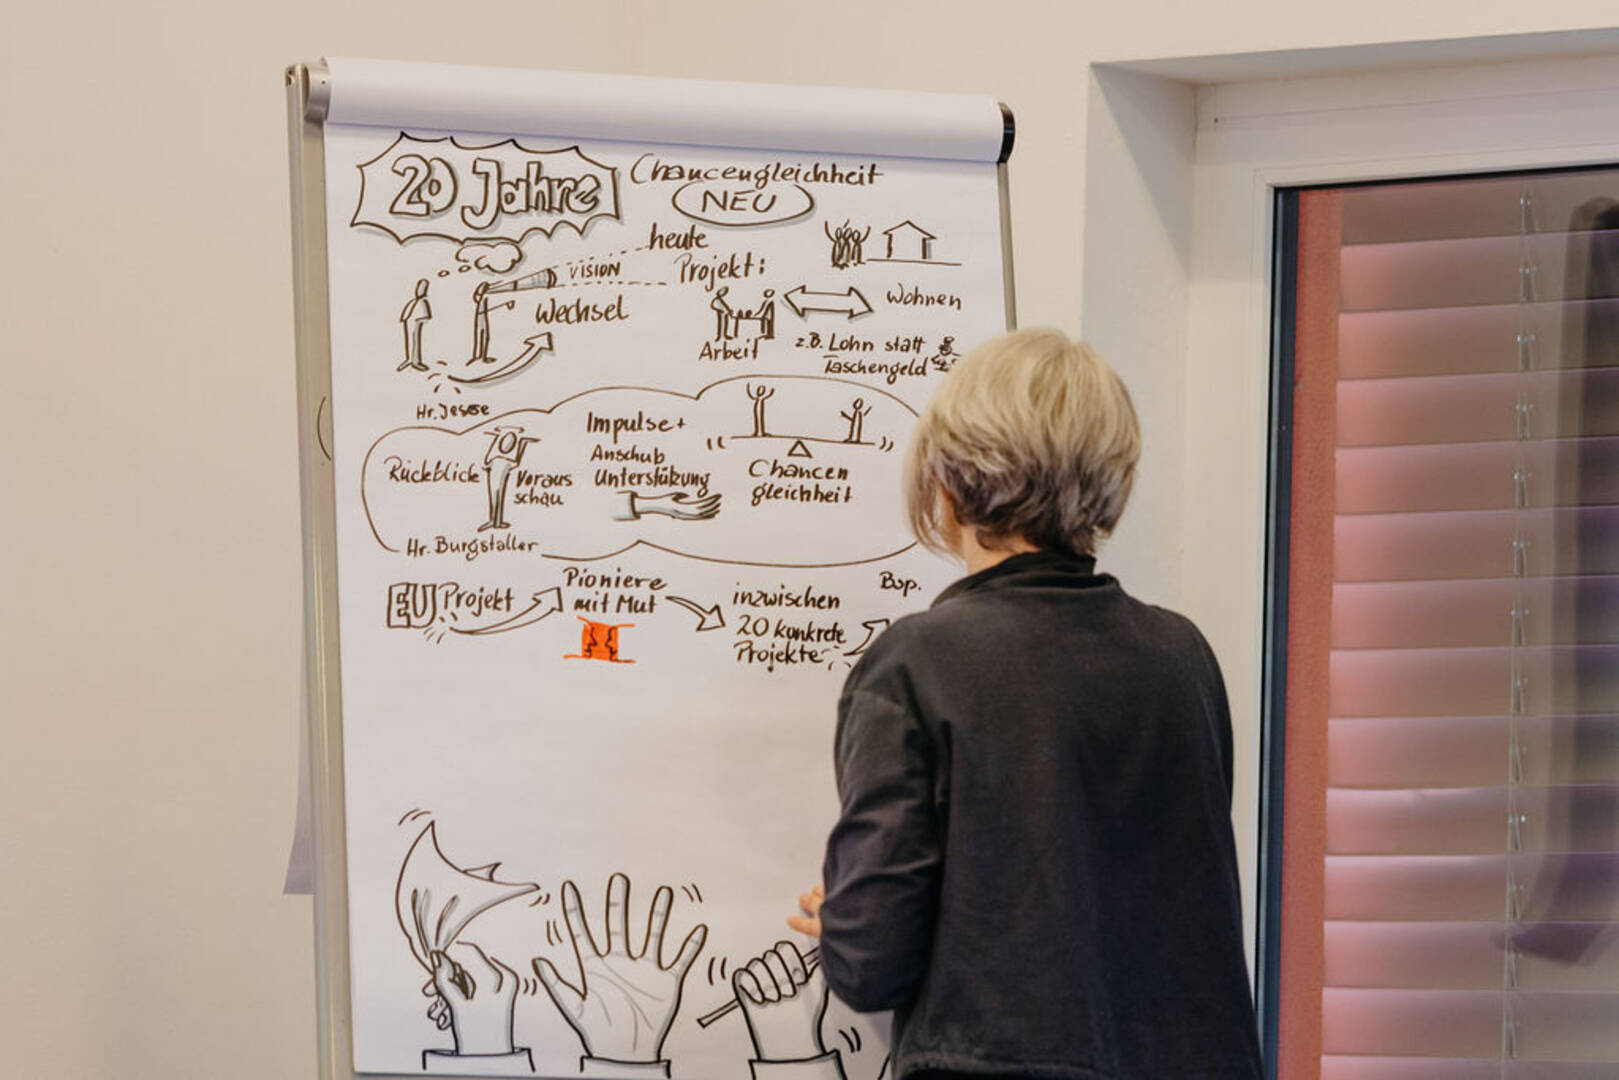 20 Jahre
Chancengleichheit
NEU
heute
VISION
Projekt:
Wechsel
Wohnen
Arbeit
z.B. Lohn statt
Taschengeld
Hr. Jesse
Impulse +
Anschub
Unterstützung
Rückblick
Voraus
schau
Chancen
gleichheit
Hr. Burgstaller
EU Projekt
Pioniere
mit Mut
inzwischen
20 konkrete
Projekte
Bsp.